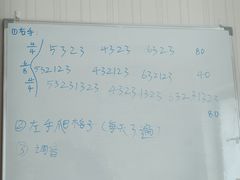 ①右手:
4/4 5323 4323 6323 80
6/8 532123 432123 632123 40
4/4 53231323 43231323 63231323
80
②左手爬格子(每天3遍)
③调音